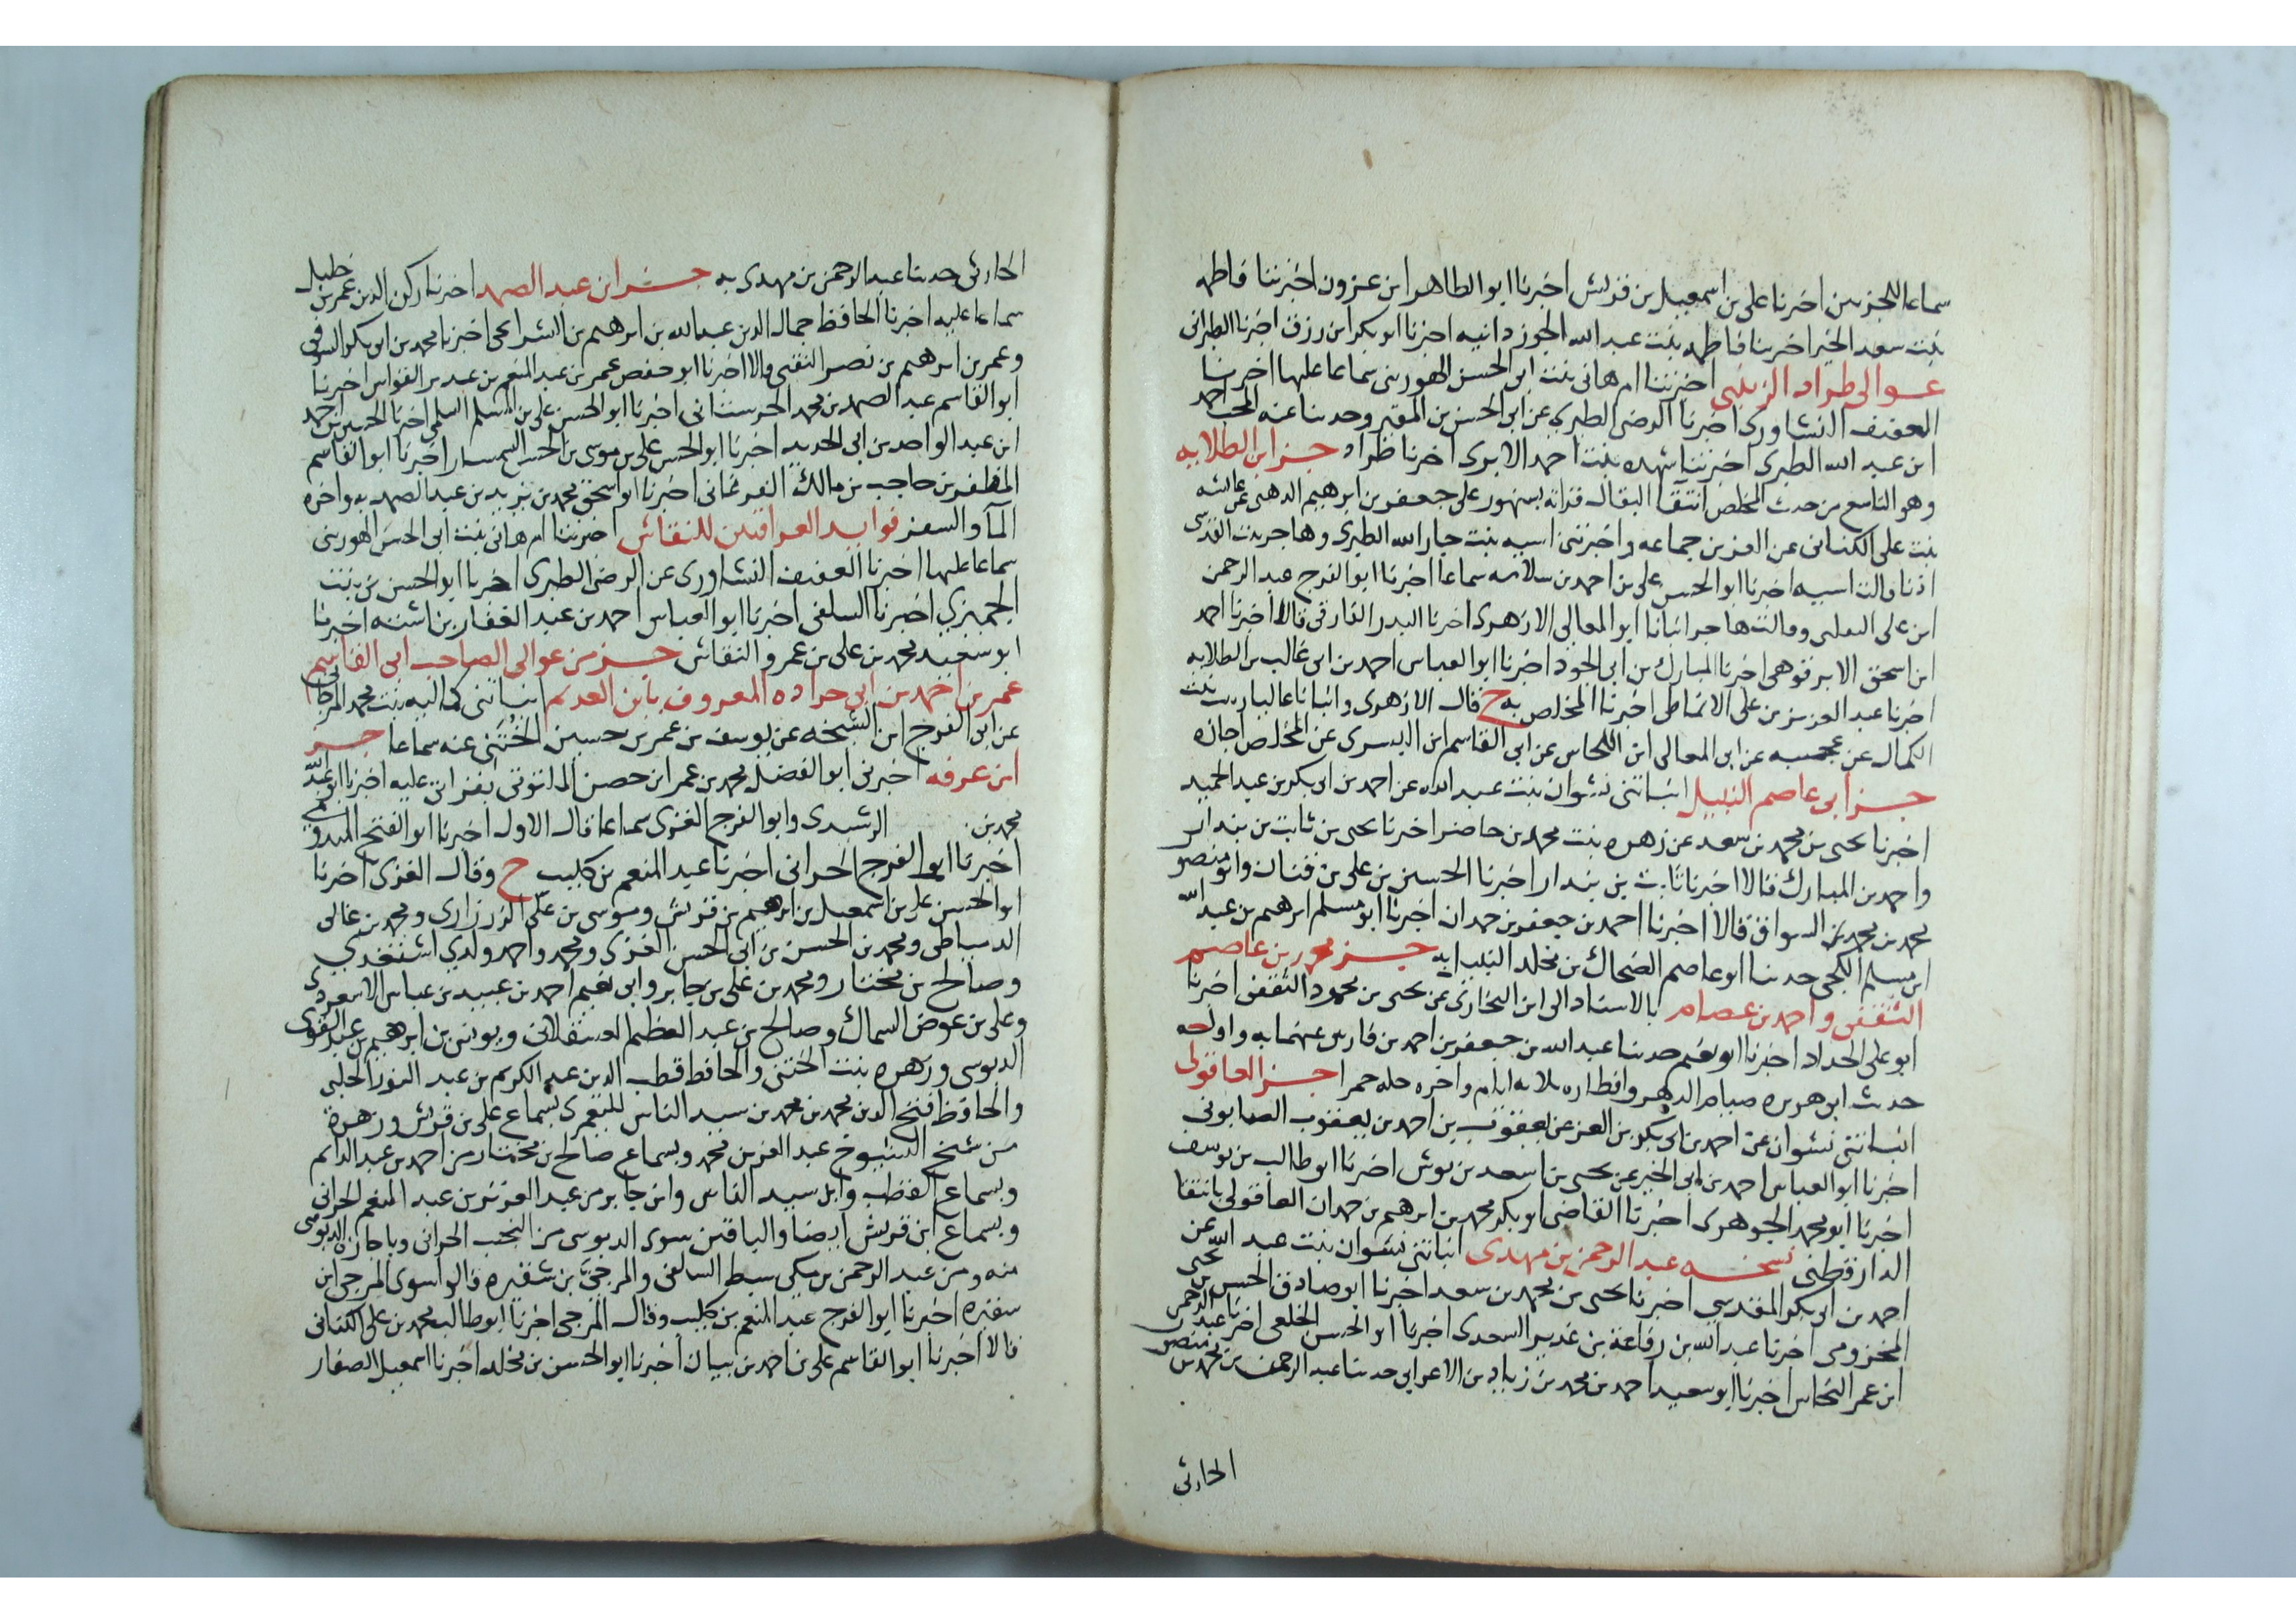 سماعا للجزءين اخبرنا على بن اسمعيل بن قريش اخبرنا ابو الطاهر ابن عزون اخبرتنا فاطمه
بنت سعد الخير اخبرتنا فاطمه بنت عبد الله الجوزدانيه اخبرنا ابو بكر ابن رزق اخبرنا الطبرانى
عوالى طراد الزينبى اخبرتنا ام هانى بنت ابى الحسن الهورينى سماعا عليها اخبرنا
العفيف النشاورى اخبرنا الرضى الطبرى عن ابى الحسن بن المقير وحدثنا عنه المحب احمد
ابن عبد الله الطبرى اخبرتنا شهده بنت احمد الابرى اخبرنا طراد جزء ابن الطلايه
وهو التاسع من حديث المخلص انتقا البقال قراته بسنهور على جعفر بن ابرهيم الدهنى عن عائشه
بنت على الكنانى عن العز بن جماعه واخبرتنى اسيه بنت جار الله الطبرى وهاجر بنت القدسى
اذنا قالت اسيه اخبرنا ابو الحسن على بن احمد بن سلامه سماعا اخبرنا ابو الفرج عبد الرحمن
ابن على الثعلبى وقالت هاجر انبانا ابو المعالى الازهرى اخبرنا البدر الفارقى قالا اخبرنا احمد
ابن اسحق الابرقوهى اخبرنا المبارك بن ابى الجود اخبرنا ابو العباس احمد بن ابى غالب بن الطلايه
اخبرنا عبد العزيز بن على الانماطى اخبرنا المخلص به ح قال الازهرى وانبانا عاليا زينب بنت
الكمال عن عجيبه عن ابى المعالى ابن اللحاس عن ابى القاسم ابن البسرى عن المخلص اجازه
جزء ابى عاصم النبيل انباتنى نشوان بنت عبد الله عن احمد بن ابى بكر بن عبد الحميد
اخبرنا يحيى بن محمد بن سعد عن زهره بنت محمد بن حاضر اخبرنا يحيى بن ثابت بن بندار
واحمد بن المبارك قالا اخبرنا ثابت بن بندار اخبرنا الحسين بن على بن قنان وابو منصور
محمد بن محمد بن السواق قالا اخبرنا احمد بن جعفر بن حمدان اخبرنا ابو مسلم ابرهيم بن عبد الله
ابن مسلم الكجى حدثنا ابو عاصم الضحاك بن مخلد النبيل به جزء محمد بن عاصم
الثقفى واحمد بن عصام بالاسناد الى ابن البخارى عن يحيى بن محمود الثقفى اخبرنا
ابو على الحداد اخبرنا ابو نعيم حدثنا عبد الله بن جعفر بن احمد بن فارس عنهما به واوله
حديث ابى هريره صيام الدهر وافطاره ثلاثه ايام واخره حله حمرا جزء العاقولى
انباتنى نشوان عن احمد بن ابى بكر بن العز عن يعقوب بن احمد بن يعقوب الصابونى
اخبرنا ابو العباس احمد بن ابى الخير عن يحيى بن اسعد بن بوش اخبرنا ابو طالب بن يوسف
اخبرنا ابو محمد الجوهرى اخبرنا القاضى ابو بكر محمد بن ابرهيم بن حمدان العاقولى بانتقا
الدارقطنى نسخه عبد الرحمن بن مهدى انباتنى نشوان بنت عبد الله عن
احمد بن ابى بكر المقدسى اخبرنا يحيى بن محمد بن سعد اخبرنا ابو صادق الحسن بن يحيى
المخزومى اخبرنا عبد الله بن رفاعة بن غدير السعدى اخبرنا ابو الحسن الخلعى اخبرنا عبد الرحمن
ابن عمر النحاس اخبرنا ابو سعيد احمد بن محمد بن زياد بن الاعرابى حدثنا عبد الرحمن بن محمد بن منصور
الحارثى
الحارثى حدثنا عبد الرحمن بن مهدى به جزء ابن عبد الصمد اخبرنا ركن الدين عمر بن خليل
سماعا عليه اخبرنا الحافظ جمال الدين عبد الله بن ابرهيم بن الشرائحى اخبرنا محمد بن ابى بكر السوقى
وعمر بن ابرهيم بن نصر النقبى قالا اخبرنا ابو حفص عمر بن عبد المنعم بن غدير القواس اخبرنا
ابو القاسم عبد الصمد بن محمد الحرستانى اخبرنا ابو الحسن على بن المسلم السلمى اخبرنا الحسين بن احمد
ابن عبد الواحد بن ابى الحديد اخبرنا ابو الحسن على بن موسى بن الحسين السمسار اخبرنا ابو القاسم
المظفر بن حاجب بن مالك الفرغانى اخبرنا ابو اسحق محمد بن يزيد بن عبد الصمد به واخره
المآ والسفر فوايد العراقيين للنقاش اخبرتنا ام هانى بنت ابى الحسن الهورينى
سماعا عليها اخبرنا العفيف النشاورى عن الرضى الطبرى اخبرنا ابو الحسن بن بنت
الجميزى اخبرنا السلفى اخبرنا ابو العباس احمد بن عبد الغفار بن اشته اخبرنا
ابو سعيد محمد بن على بن عمرو النقاش جزء من عوالى الصاحب ابى القاسم
عمر بن احمد بن ابى جراده المعروف بابن العديم انباتنى كماليه بنت محمد المرجانى
عن ابى الفرج ابن الشيخه عن يوسف بن عمر بن حسين الخُتَنى عنه سماعا جزء
ابن عرفه اخبرنى ابو الفضل محمد بن عمر ابن حصن الملتوتى بقراتى عليه اخبرنا ابو عبد الله
محمد بن الرشيدى وابو الفرج الغزى سماعا قال الاول اخبرنا ابو الفتح الميدومى
اخبرنا ابو الفرج الحرانى اخبرنا عبد المنعم بن كليب ح وقال الغزى اخبرنا
ابو الحسن على بن اسمعيل بن ابرهيم بن قريش وموسى بن على الزرزارى ومحمد بن غالى
الدمياطى ومحمد بن الحسن بن ابى الحسن الغزى ومحمد واحمد ولدى اشتغدى
وصالح بن مختار ومحمد بن على بن جابر وابى نعيم احمد بن عبيد بن عباس الاسعردى
وعلى بن عوض السماك وصالح بن عبد العظيم العسقلانى ويونس بن ابرهيم بن عبد القوى
الدبوسى وزهره بنت الختنى والحافظ قطب الدين عبد الكريم بن عبد النور الحلبى
والحافظ فتح الدين محمد بن محمد بن سيد الناس اليعمرى بسماع على بن قريش وزهرة
من شيخ الشيوخ عبد العزيز بن محمد وبسماع صالح بن مختار من احمد بن عبد الدائم
وبسماع القطب وابن سيد الناس وابن جابر من عبد العزيز بن عبد المنعم الحرانى
وبسماع ابن قريش ايضا والباقين سوى الدبوسى من النجيب الحرانى وباجازه الدبوسى
منه ومن عبد الرحمن بن مكى سبط السلفى والمرجى بن شقيره قالوا سوى المرجى ابن
سقيره اخبرنا ابو الفرج عبد المنعم بن كليب وقال المرجى اخبرنا ابو طالب محمد بن على الكتانى
قالا اخبرنا ابو القاسم على بن احمد بن بيان اخبرنا ابو الحسن بن مخلد اخبرنا اسمعيل الصفار